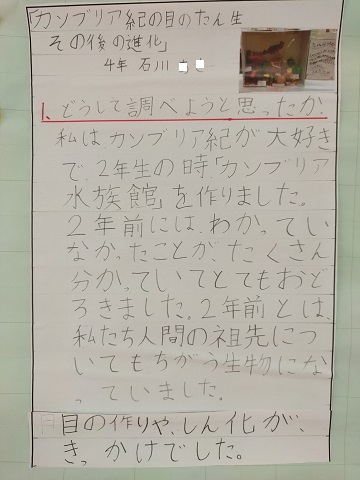 「カンブリア紀の目のたん生
その後の進化」
4年 石川
1、どうして調べようと思ったか。
私は、カンブリア紀が大好き
で、2年生の時、「カンブリア
水族館」を作りました。
2年前には、わかってい
なかったことが、たくさん
分かっていてとてもおど
ろきました。2年前とは、
私たち人間の祖先につ
いてもちがう生物にな
っていました。
目の作りや、しん化が、
きっかけでした。